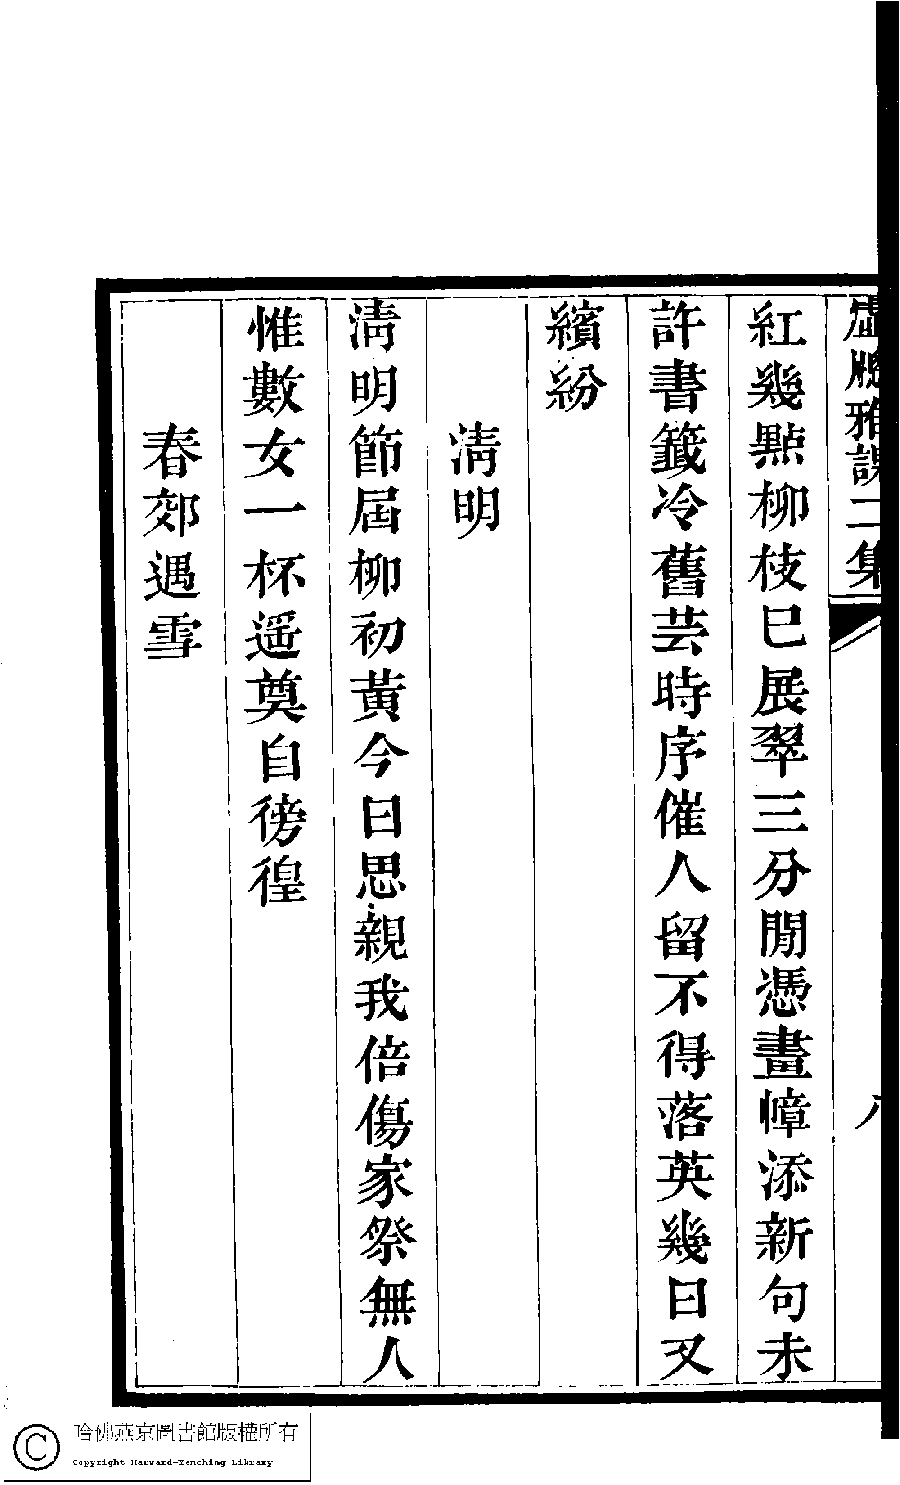 虛牕雅課二集
八
紅幾點柳枝巳展翠三分閒憑畫幛添新句未
許書籤冷舊芸時序催人留不得落英幾日又
繽紛
淸明
淸明節屆柳初黃今日思親我倍傷家祭無人
惟數女一杯遥奠自徬徨
春郊遇雪
哈佛燕京圖書館版權所有
Copyright Harvard-Yenching Library